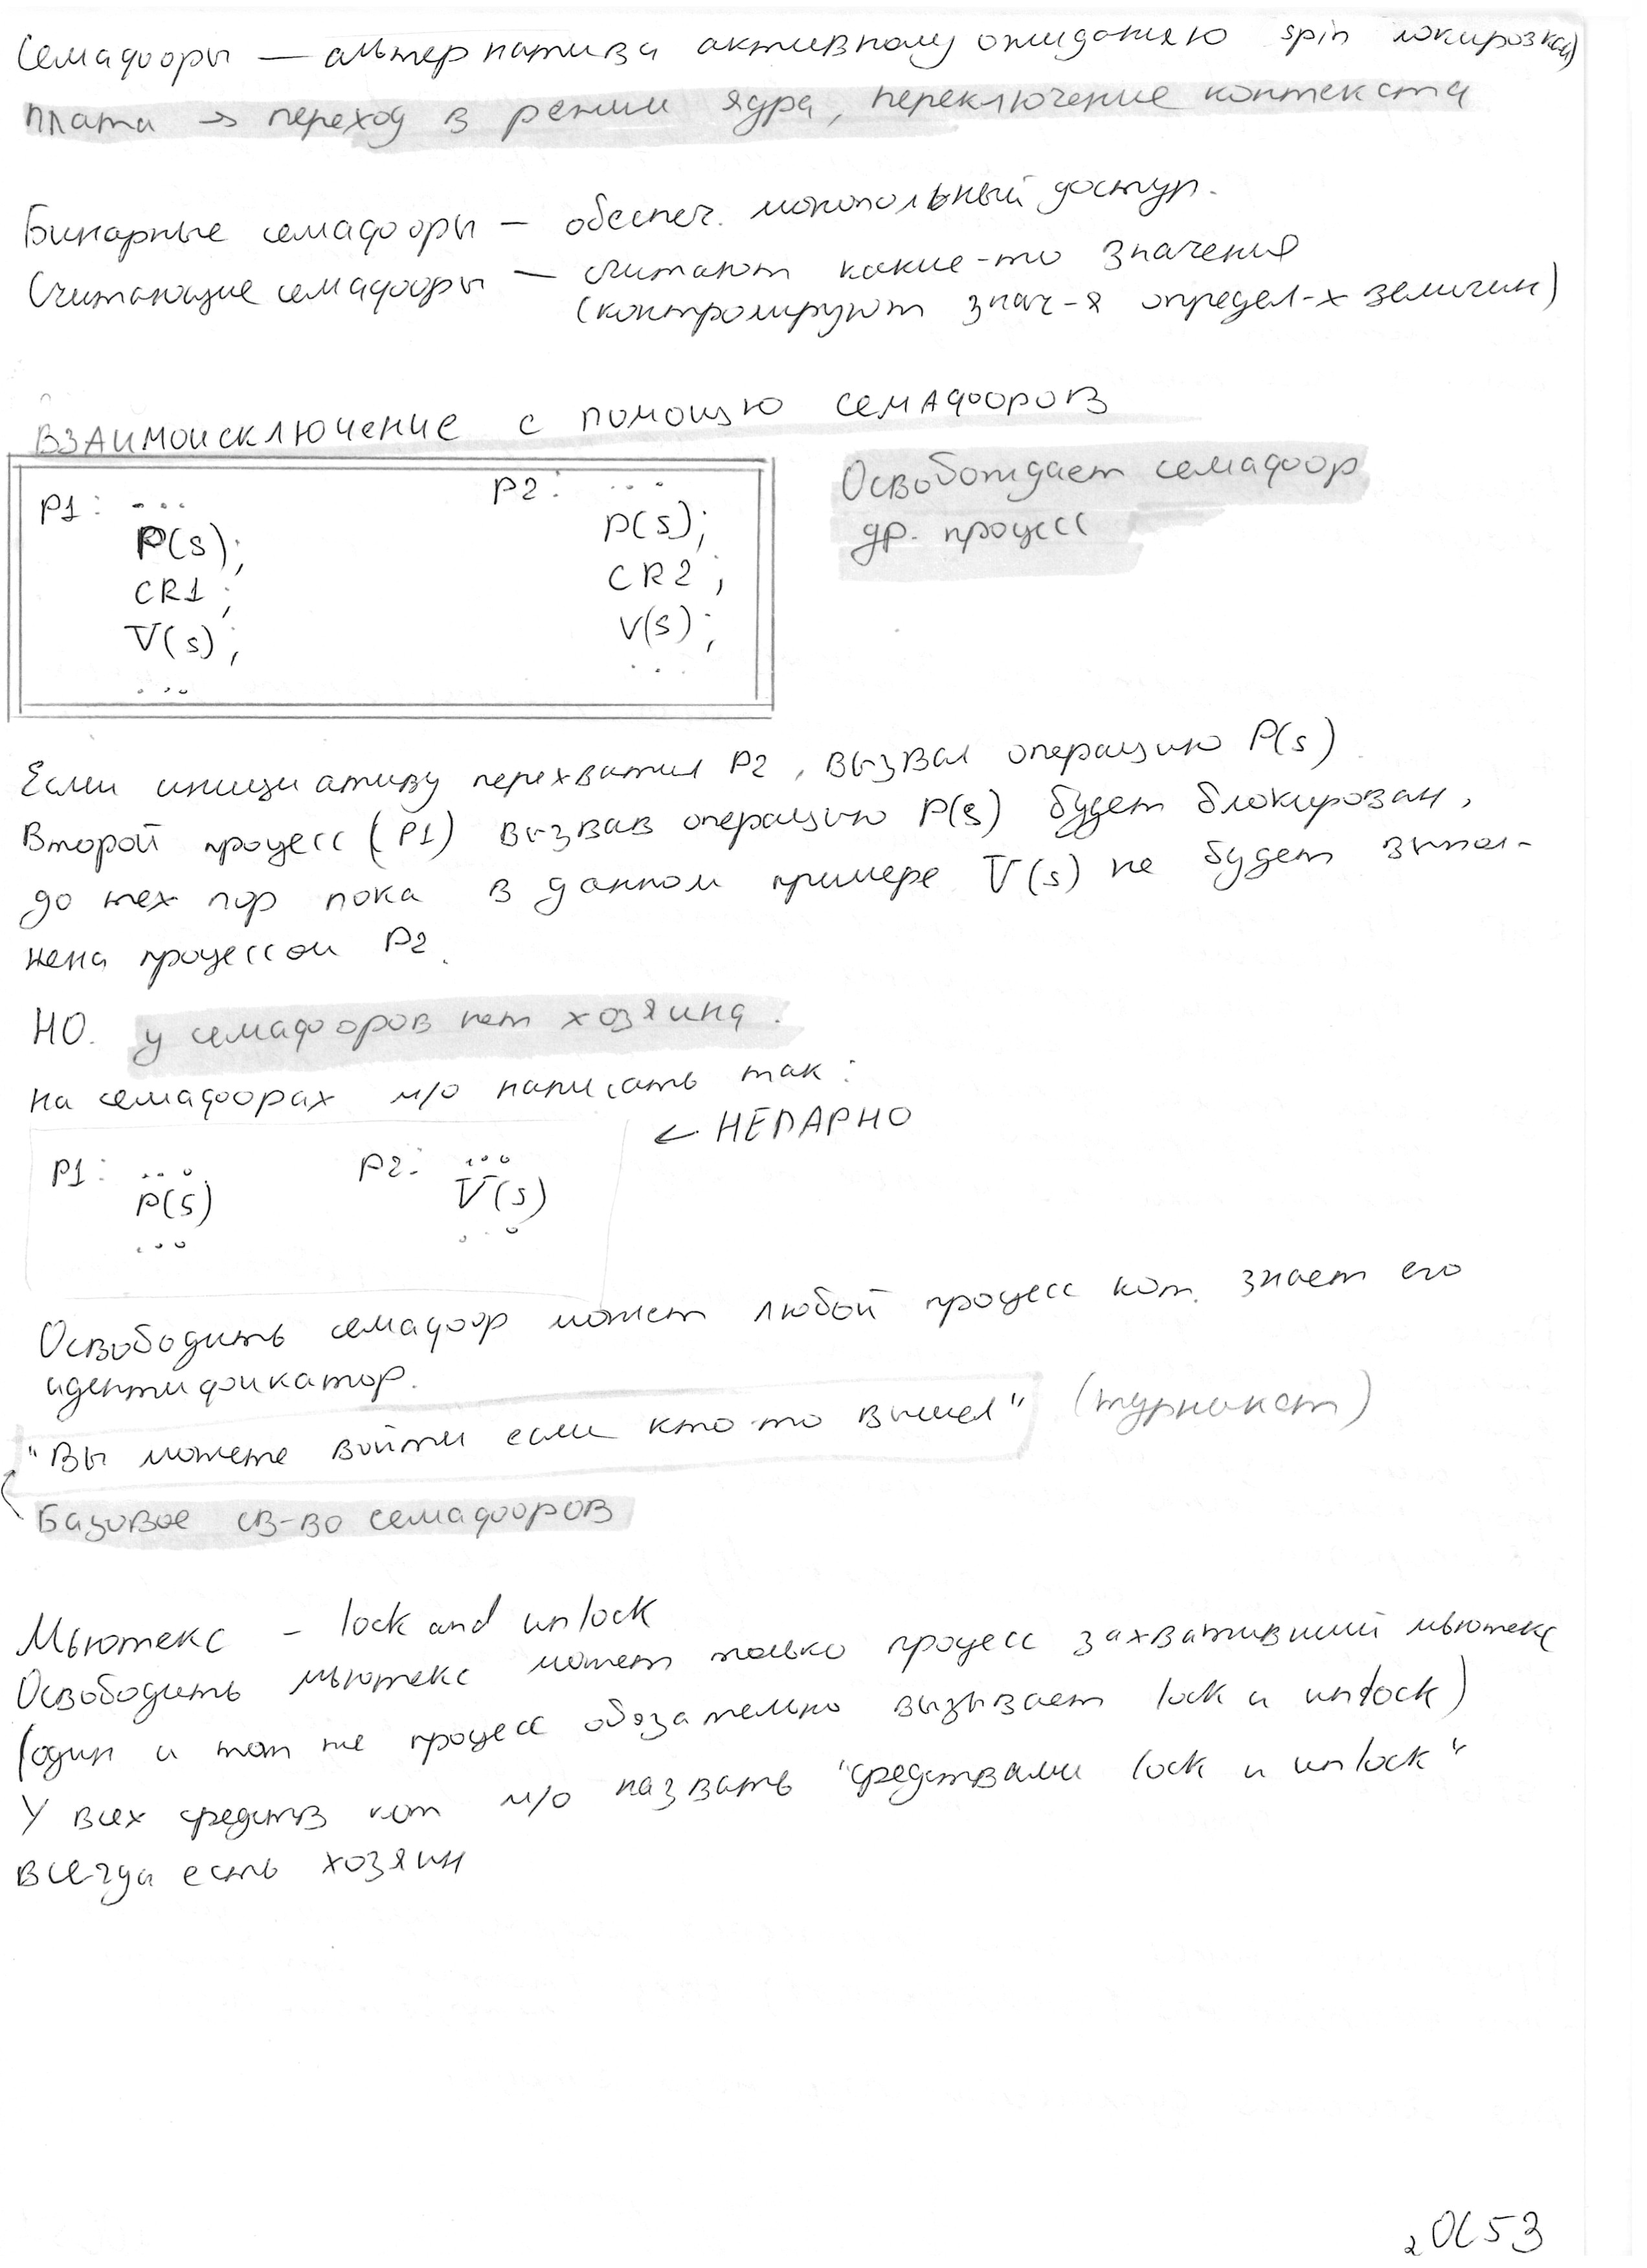 Семафоры — альтернатива активному ожиданию spin локировка)
плата → переход в режим ядра, переключение контекста
Бинарные семафоры — обеспеч. монопольный доступ.
Считающие семафоры — считают какие-то значения
(контролируют знач-я определ-х величин)
ВЗАИМОИСКЛЮЧЕНИЕ С ПОМОЩЬЮ СЕМАФОРОВ
P1: ...
P(s);
CR1;
V(s);
...
P2: ...
P(s);
CR2;
V(s);
...
Освобождает семафор
др. процесс
Если инициативу перехватил P2, вызвал операцию P(s)
Второй процесс (P1) вызвав операцию P(s) будет блокирован,
до тех пор пока в данном примере V(s) не будет выпол-
нена процессом P2.
НО. у семафоров нет хозяина.
На семафорах м/о написать так:
← НЕПАРНО
P1: ...
P(s)
...
P2: ...
V(s)
...
Освободить семафор может любой процесс кот. знает его
идентификатор.
"Вы можете войти если кто-то вышел" (турникет)
Базовое св-во семафоров
Мьютекс - lock and unlock
Освободить мьютекс может только процесс захвативший мьютекс
(один и тот же процесс обязательно вызывает lock и unlock)
У всех средств кот м/о назвать "средствами lock и unlock"
всегда есть хозяин
2 ОС 53